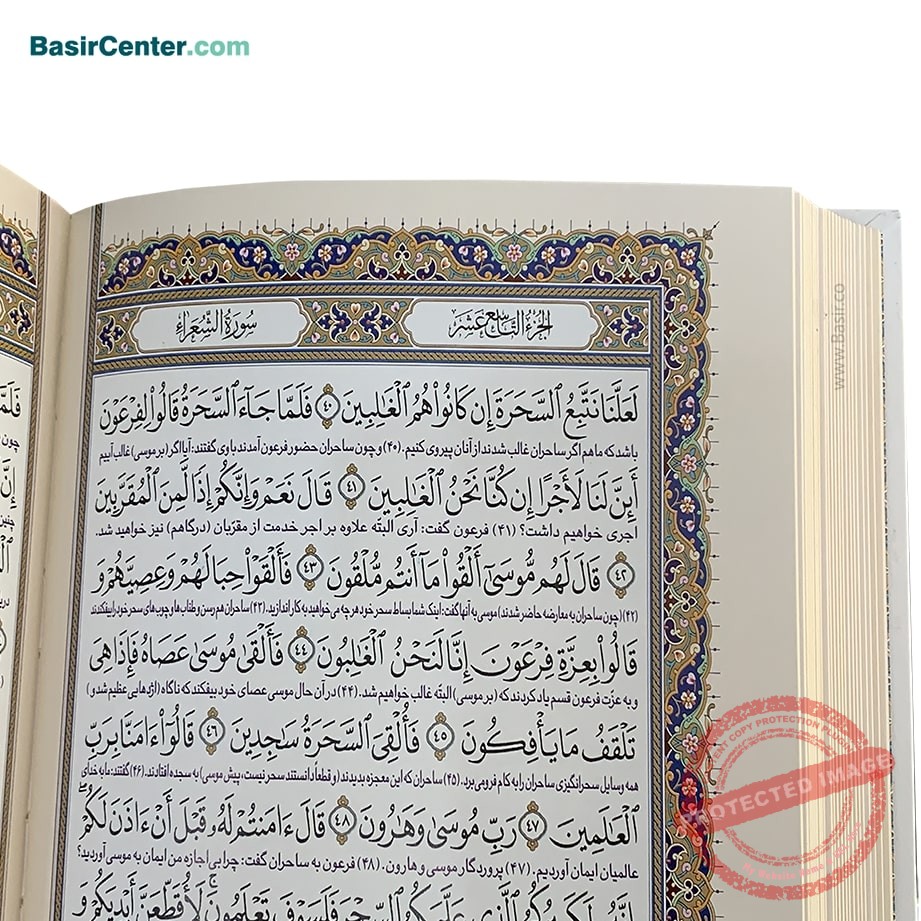 BasirCenter.com
الجزء التاسع عشر
سورة الشعراء
لَعَلَّنَا نَتَّبِعُ السَّحَرَةَ إِن كَانُوا هُمُ الْغَالِبِينَ ﴿٤٠﴾ فَلَمَّا جَاءَ السَّحَرَةُ قَالُوا لِفِرْعَوْنَ
باشد که ما هم اگر ساحران غالب شدند از آنان پیروی کنیم. (۴۰) و چون ساحران حضور فرعون آمدند با وی گفتند: آیا اگر (بر موسی) غالب آییم
أَئِنَّ لَنَا لَأَجْرًا إِن كُنَّا نَحْنُ الْغَالِبِينَ ﴿٤١﴾ قَالَ نَعَمْ وَإِنَّكُمْ إِذًا لَّمِنَ الْمُقَرَّبِينَ
اجری خواهیم داشت؟ (۴۱) فرعون گفت: آری البتّه علاوه بر اجر خدمت از مقرّبان (درگاهم) نیز خواهید شد.
﴿٤٢﴾ قَالَ لَهُم مُّوسَىٰ أَلْقُوا مَا أَنتُم مُّلْقُونَ ﴿٤٣﴾ فَأَلْقَوْا حِبَالَهُمْ وَعِصِيَّهُمْ وَ
(۴۲) (چون ساحران به معارضه حاضر شدند) موسی به آنها گفت: اینک شما بساط سحر خود هر چه می‌خواهید به کار اندازید. (۴۳) ساحران هم رسن و طنابها و چوب‌های سحر خود را بیفکندند
قَالُوا بِعِزَّةِ فِرْعَوْنَ إِنَّا لَنَحْنُ الْغَالِبُونَ ﴿٤٤﴾ فَأَلْقَىٰ مُوسَىٰ عَصَاهُ فَإِذَا هِيَ
و به عزت فرعون قسم یاد کردند که (بر موسی) البتّه غالب خواهیم شد. (۴۴) در آن حال موسی عصای خود بیفکند که ناگاه (اژدهایی عظیم شد و)
تَلْقَفُ مَا يَأْفِكُونَ ﴿٤٥﴾ فَأُلْقِيَ السَّحَرَةُ سَاجِدِينَ ﴿٤٦﴾ قَالُوا آمَنَّا بِرَبِّ
همه وسایل سحرانگیزی ساحران را به کام فرو می‌برد. (۴۵) ساحران که این معجزه بدیدند (و قطعاً دانستند سحر نیست، پیش موسی) به سجده افتادند. (۴۶) گفتند: ما به خدای
الْعَالَمِينَ ﴿٤٧﴾ رَبِّ مُوسَىٰ وَهَارُونَ ﴿٤٨﴾ قَالَ آمَنتُمْ لَهُ قَبْلَ أَنْ آذَنَ لَكُمْ
عالمیان ایمان آوردیم. (۴۷) پروردگار موسی و هارون. (۴۸) فرعون به ساحران گفت: چرا بی اجازه من ایمان به موسی آوردید؟
إِنَّهُ لَكَبِيرُكُمُ الَّذِي عَلَّمَكُمُ السِّحْرَ فَلَسَوْفَ تَعْلَمُونَ لَأُقَطِّعَنَّ أَيْدِيَكُمْ وَ
www.Basir.co
COPY PROTECTION
PROTECTED IMAGE